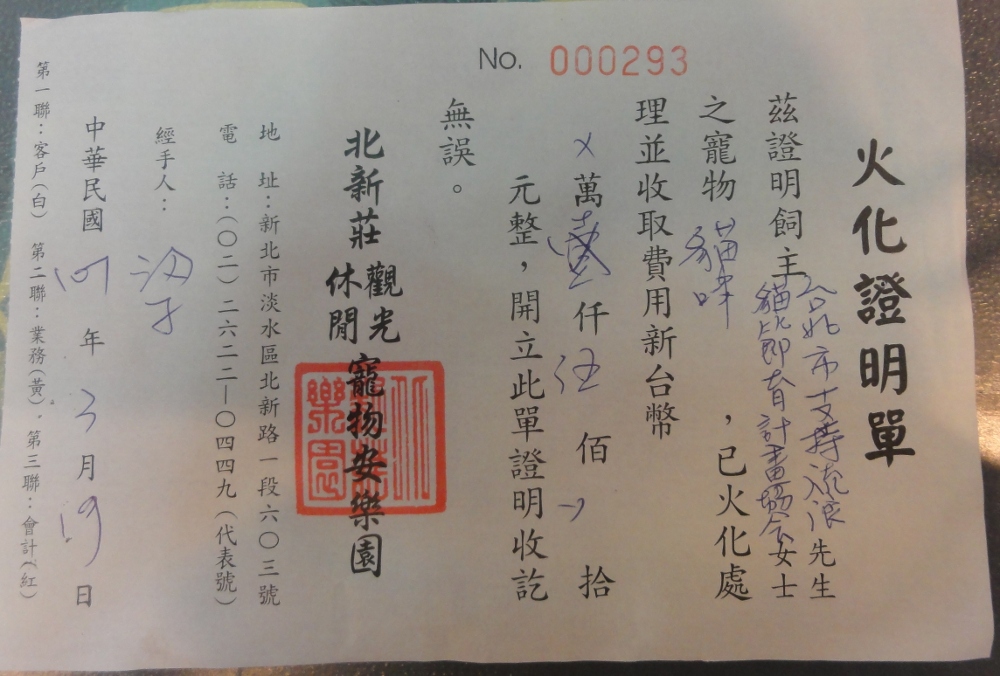 No. 000293
火化證明單
茲證明飼主台北市支持流浪貓絕育計畫協會先生女士
之寵物貓咪，已火化處
理並收取費用新台幣
×萬壹仟伍佰 拾
元整，開立此單證明收訖
無誤。
北新莊觀光休閒寵物安樂園
地址：新北市淡水區北新路一段六〇三號
電話：（〇二）二六二二—〇四四九（代表號）
經手人：
中華民國 年3月19日
第一聯：客戶（白） 第二聯：業務（黃）。第三聯：會計（紅）